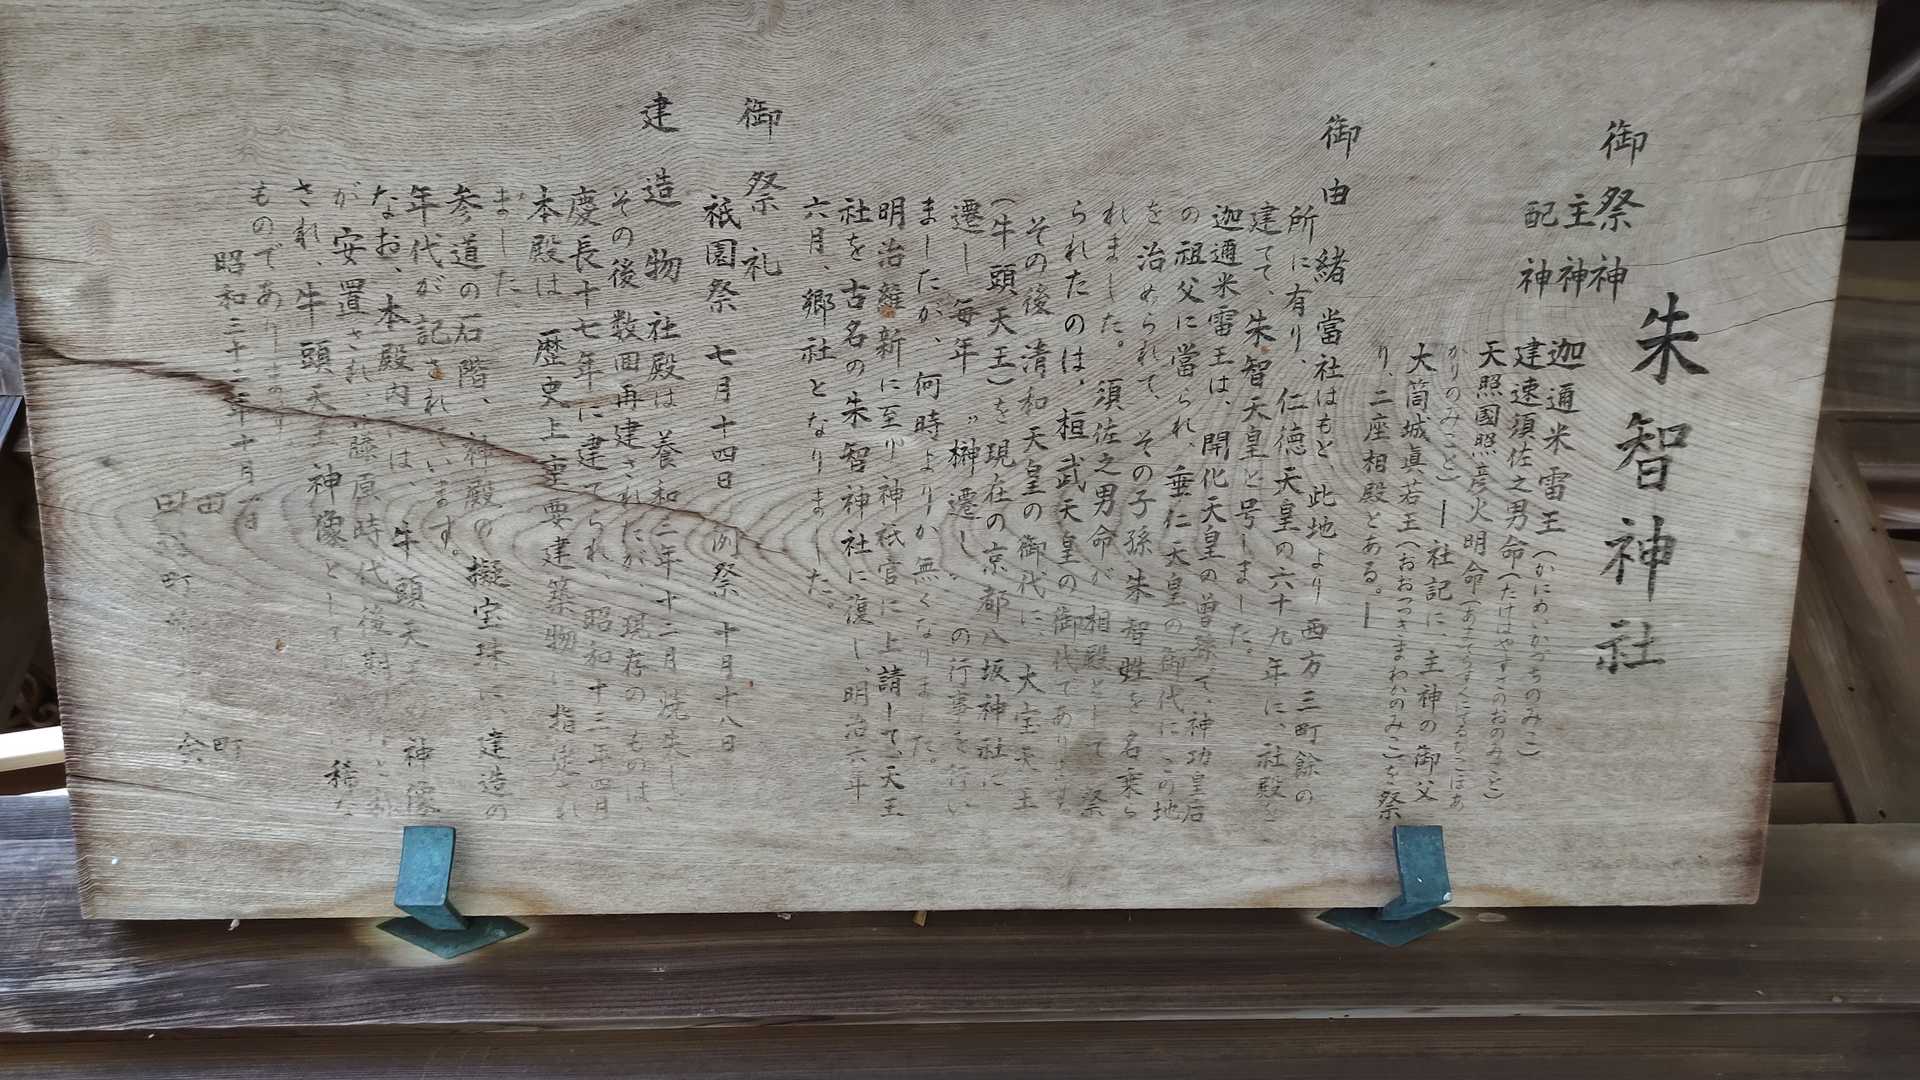 朱智神社
御祭神
主神 迦邇米雷王(かにめいかづちのみこ)
配神 建速須佐之男命(たけはやすさのおのみこと)
天照國照彦火明命(あまてらすくにてるひこほあ
かりのみこと)ー社記に、主神の御父
大筒城真若王(おおつつきまわかのみこ)を祭
り、二座相殿とある。ー
御由緒 當社はもと、此地より西方三町餘の
所に有り、仁徳天皇の六十九年に、社殿を
建てて、朱智天皇と号しました。
迦邇米雷王は、開化天皇の曽孫で、神功皇后
の祖父に當られ、垂仁天皇の御代に この地
を治められて、その子孫、朱智姓を名乗ら
れました。須佐之男命が相殿として祭
られたのは、桓武天皇の御代であります
その後、清和天皇の御代に、大宝天王
(牛頭天王)を現在の京都八坂神社に
遷し 毎年〃榊遷し〃の行事を行い
ましたが、何時よりか無くなりました。
明治維新に至り 神祇官に上請して、天王
社を古名の朱智神社に復し、明治六年
六月、郷社となりました。
御祭礼
祇園祭 七月十四日 例祭 十月十八日
建造物 社殿は 養和二年十二月 焼失し
その後 数囬再建されたが、現存のものは、
慶長十七年に建てられ、昭和十三年四月
本殿は 歴史上重要建築物に指定され
ました
参道の石階、神殿の擬宝珠に、建造の
年代が記されています。
なお、本殿内には、牛頭天王 神像
が安置され 藤原時代後期
され、牛頭天王神像として 稀な
ものであります
昭和三十二年十月一日
田 町
田 町 会